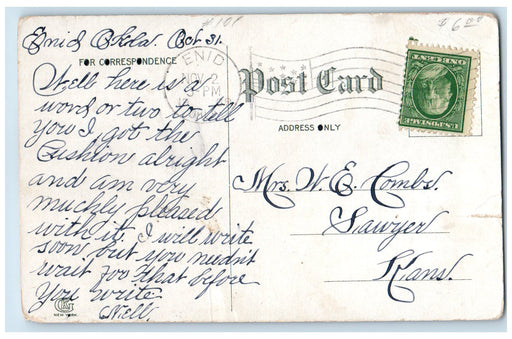 Enid Okla. Oct 31.
FOR CORRESPONDENCE
Well here is a
word or two to tell
you I got the
Cushion alright
and am very
muchly pleased
with it. I will write
soon but you needn't
wait for that before
you write.
Nell.
NEW YORK
ENID
NOV 2
PM
Post Card
ADDRESS ONLY
Mrs. W. E. Combs.
Sawyer
Kans.
U.S. POSTAGE
ONE CENT
$6.00